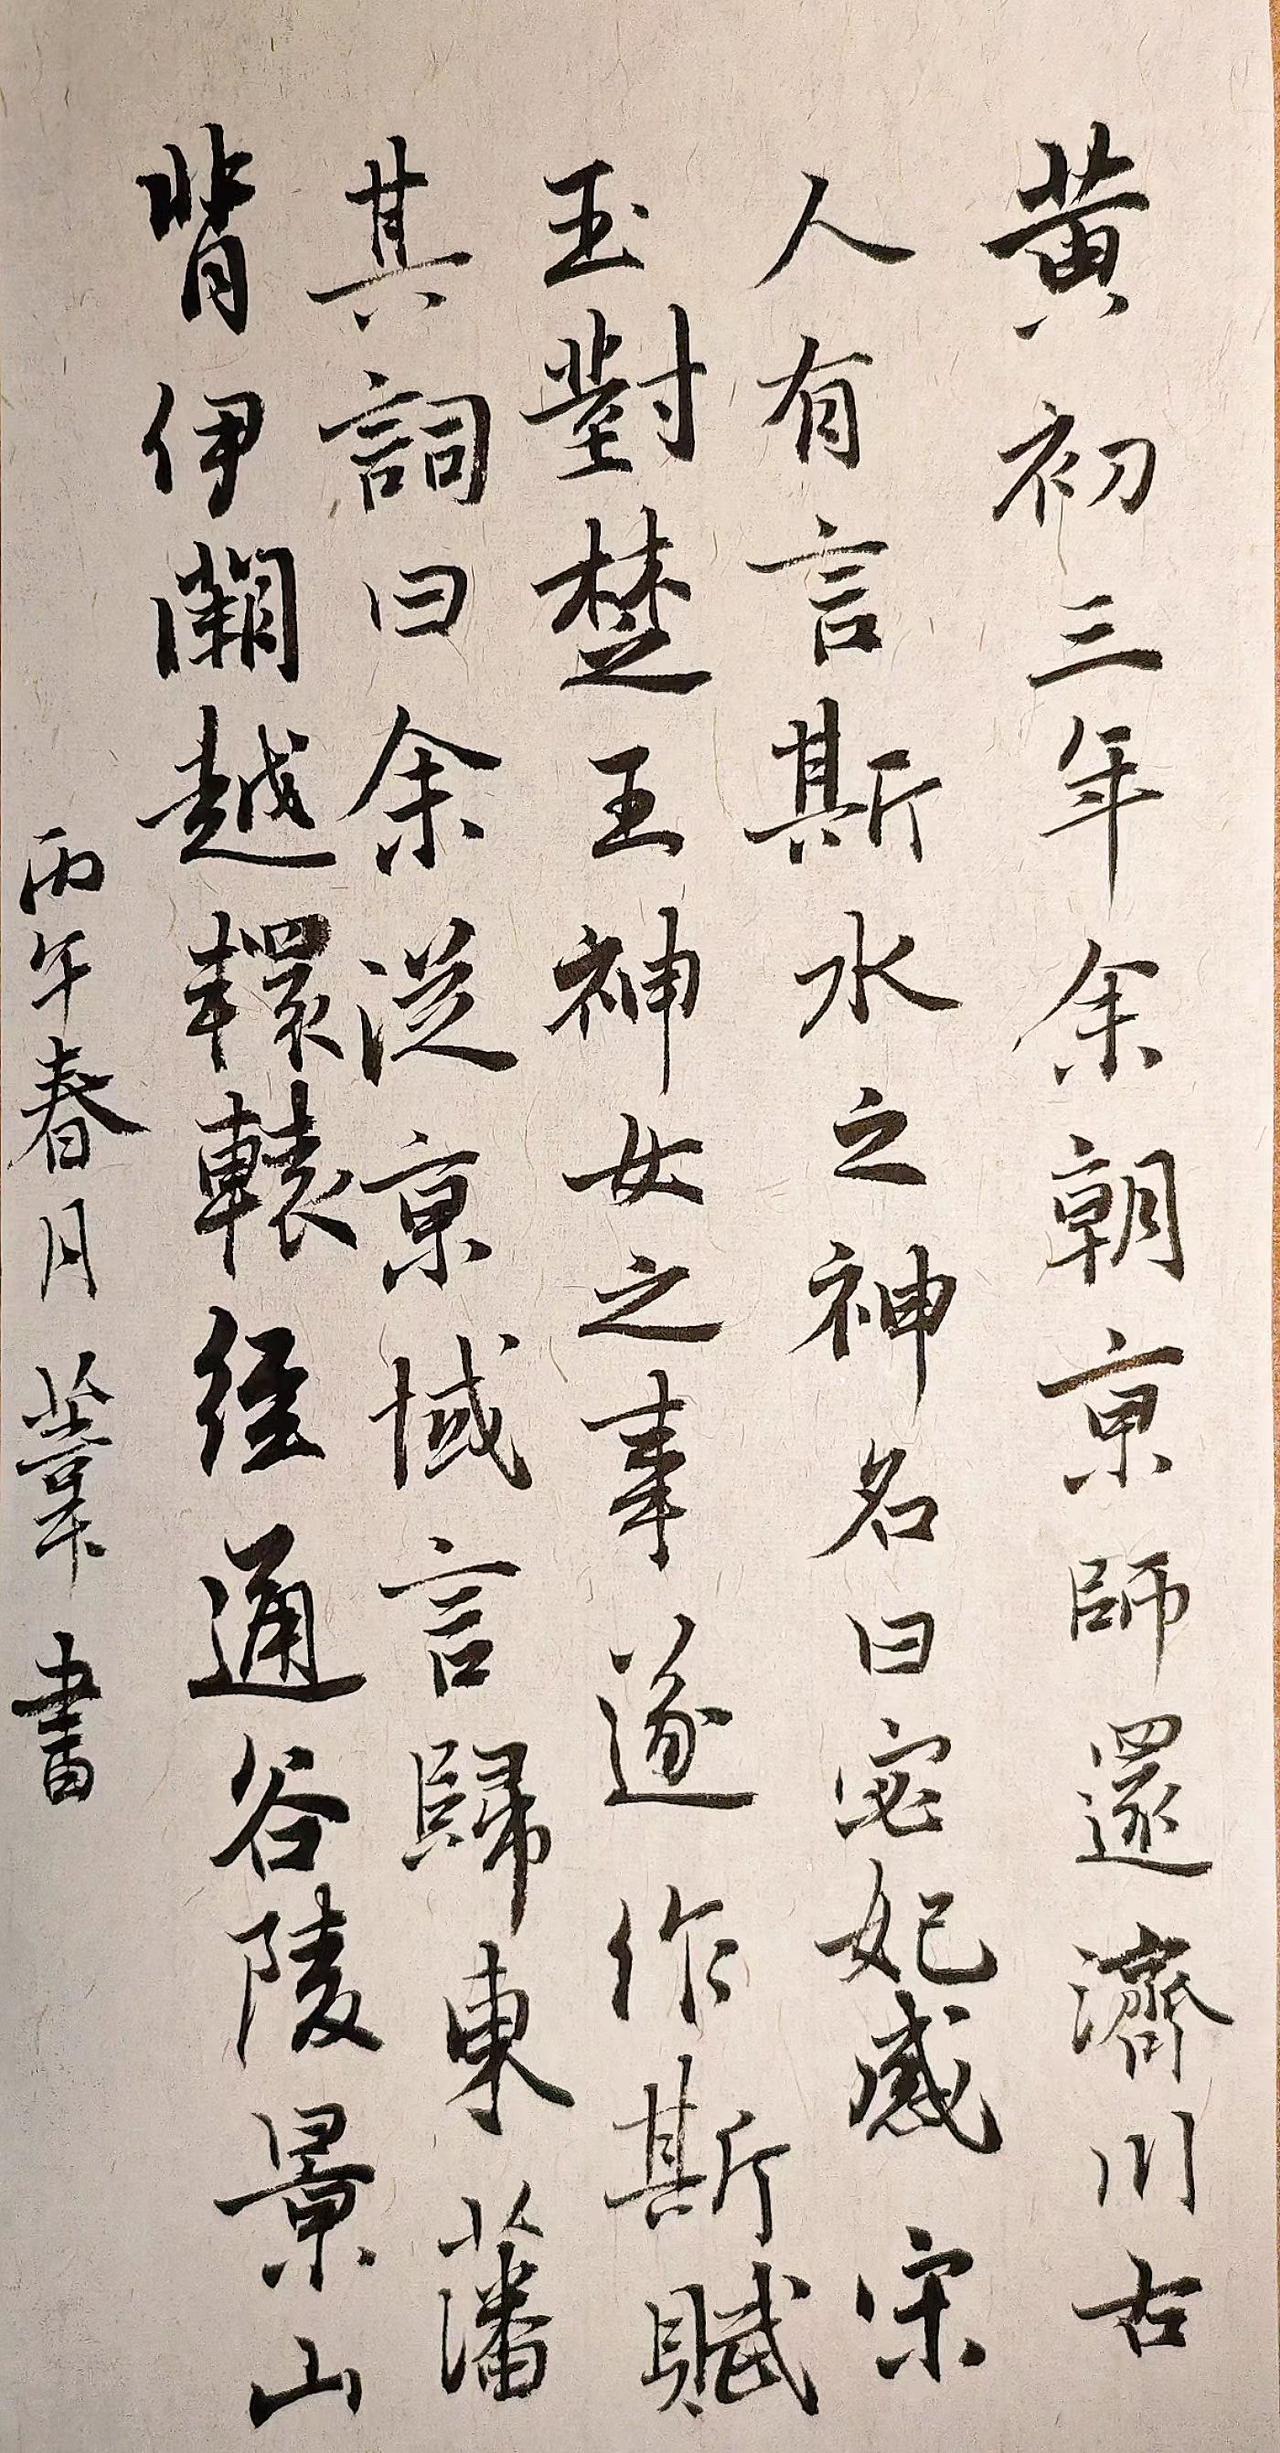 黄初三年余朝京師還濟川古
人有言斯水之神名曰宓妃感宋
玉對楚王神女之事遂作斯賦
其詞曰余從京域言歸東藩
背伊闕越轘轅徑通谷陵景山
丙午春月葦書